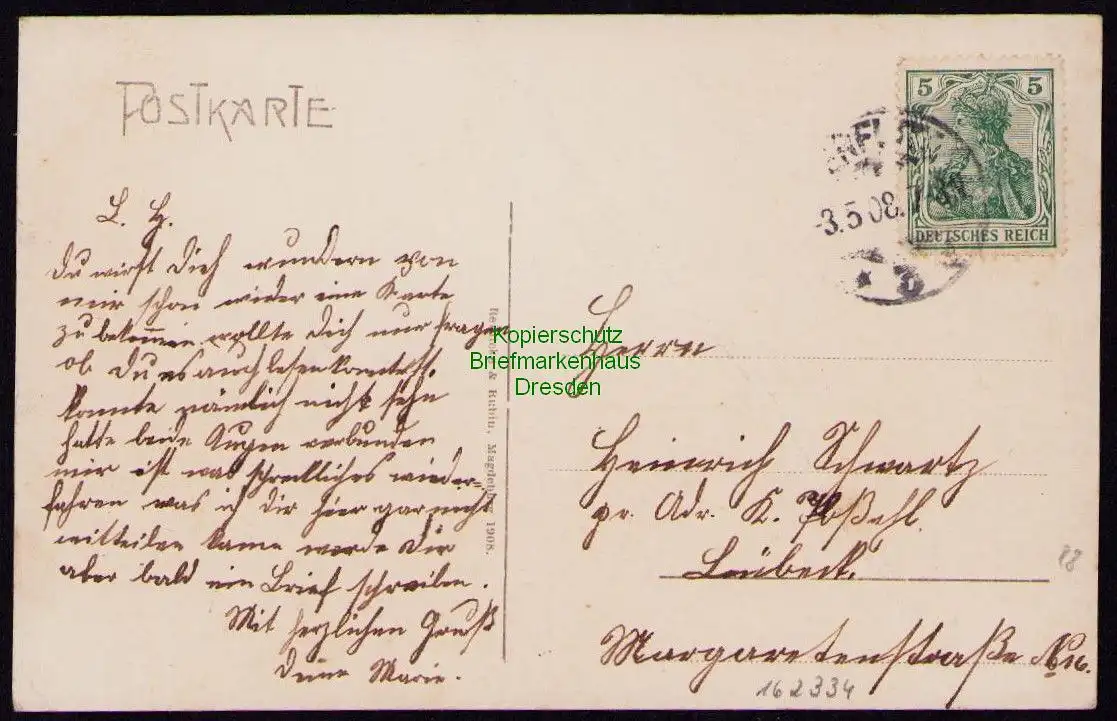 POSTKARTE
5 5
DEUTSCHES REICH
3.5.08.
L. H.
du wirst Dich wundern von
mir schon wider eine Karte
zu bekommen wollte Dich nur fragen
ob Du es auch lesen konntest.
konnte nämlich nicht sehn
hatte beide Augen verbunden
mir ist was schreckliches wieder=
fahren was ich dir hier gar nicht
mitteilen kann werde Dir
aber bald ein Brief schreiben.
Mit herzlichen Gruß
Deine Marie.
& Rubin, Magdeburg 1908.
Kopierschutz
Briefmarkenhaus
Dresden
Herrn
Heinrich Schwartz
pr. Adr. K. Poßehl.
Lübeck.
Margaretenstraße No 16.
88
162334